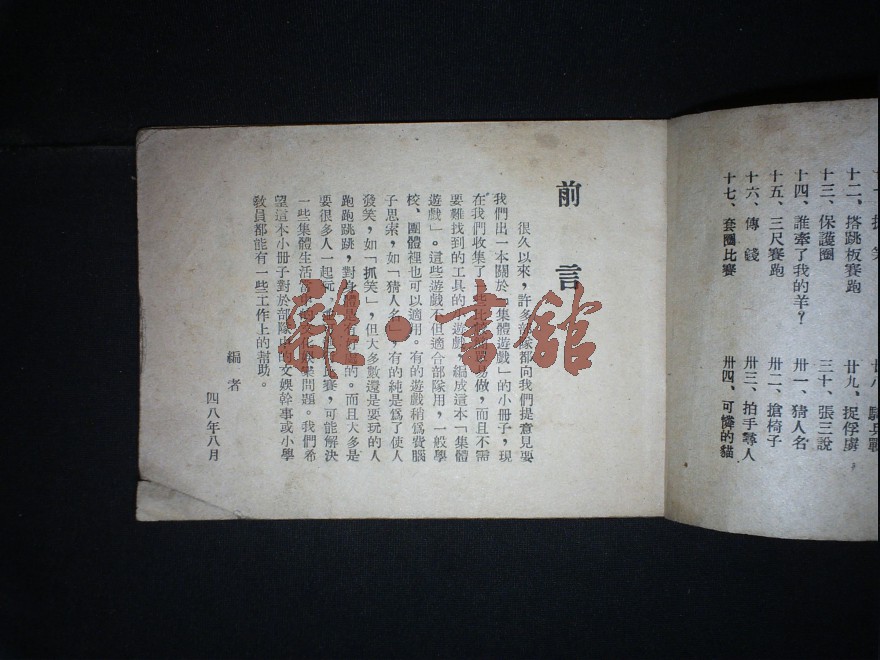 十二、搭跳板賽跑
十三、保護圈
十四、誰牽了我的羊？
十五、三尺賽跑
十六、傳錢
十七、套圈比賽
廿九、捉俘虜
三十、張三說
卅一、猜人名
卅二、搶椅子
卅三、拍手尋人
卅四、可憐的貓
前言
很久以來，許多部隊都向我們提意見要
我們出一本關於「集體遊戲」的小冊子，現
在我們收集了一些比較易做，而且不需
要難找到的工具的遊戲，編成這本「集體
遊戲」。這些遊戲不但適合部隊用，一般學
校、團體裡也可以適用。有的遊戲稍爲費腦
子思索，如「猜人名」，有的純是爲了使人
發笑，如「抓笑」，但大多數還是要玩的人
跑跑跳跳，對身體有的。而且大多是
要很多人一起玩，比賽，可能解決
一些集體生活當中的文化娛樂問題。我們希
望這本小冊子對於部隊中的文娛幹事或小學
教員都能有一些工作上的幫助。
編者
四八年八月
雜·書館